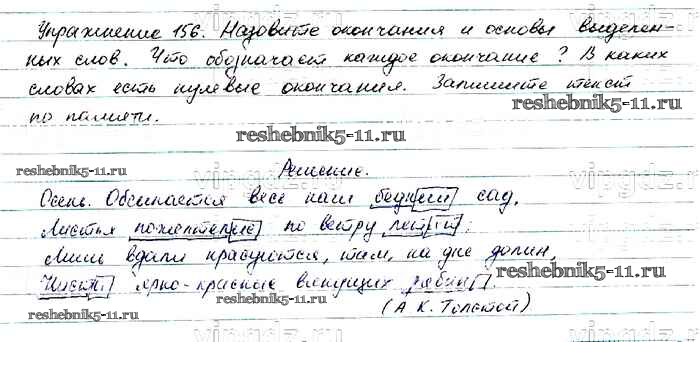 Упражнение 156. Назовите окончания и основы выделен-
ных слов. Что обозначает каждое окончание? В каких
словах есть нулевые окончания. Запишите текст
по памяти.
vipgdz.ru
reshebnik5-11.ru
reshebnik5-11.ru
reshebnik5-11.ru
Решение.
vipgdz.ru
vipgdz.ru
Осень. Обсыпается весь наш бедный сад,
Листья пожелтелые по ветру летят;
Лишь вдали красуются, там, на дне долин,
Кисти ярко-красные вянущих рябин.
reshebnik5-11.ru
reshebnik5-11.ru
reshebnik5-11.ru
(А К. Толстой)
vipgdz.ru
vipgdz.ru